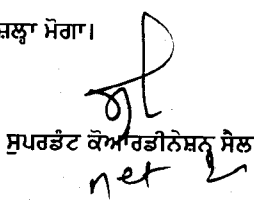 ਜ਼ਲ੍ਹਾ ਮੋਗਾ।
ਸੁਪਰਡੰਟ ਕੋਆਰਡੀਨੇਸ਼ਨ ਸੈਲ
net